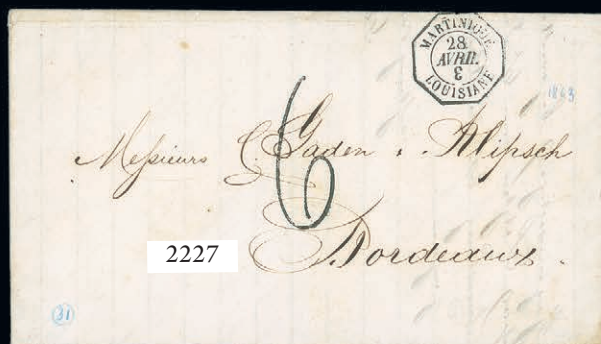 MARTINIQUE
28
AVRIL
LOUISIANE
1863
Messieurs G. Gaden & Klipsch
6
Bordeaux.
2227
31